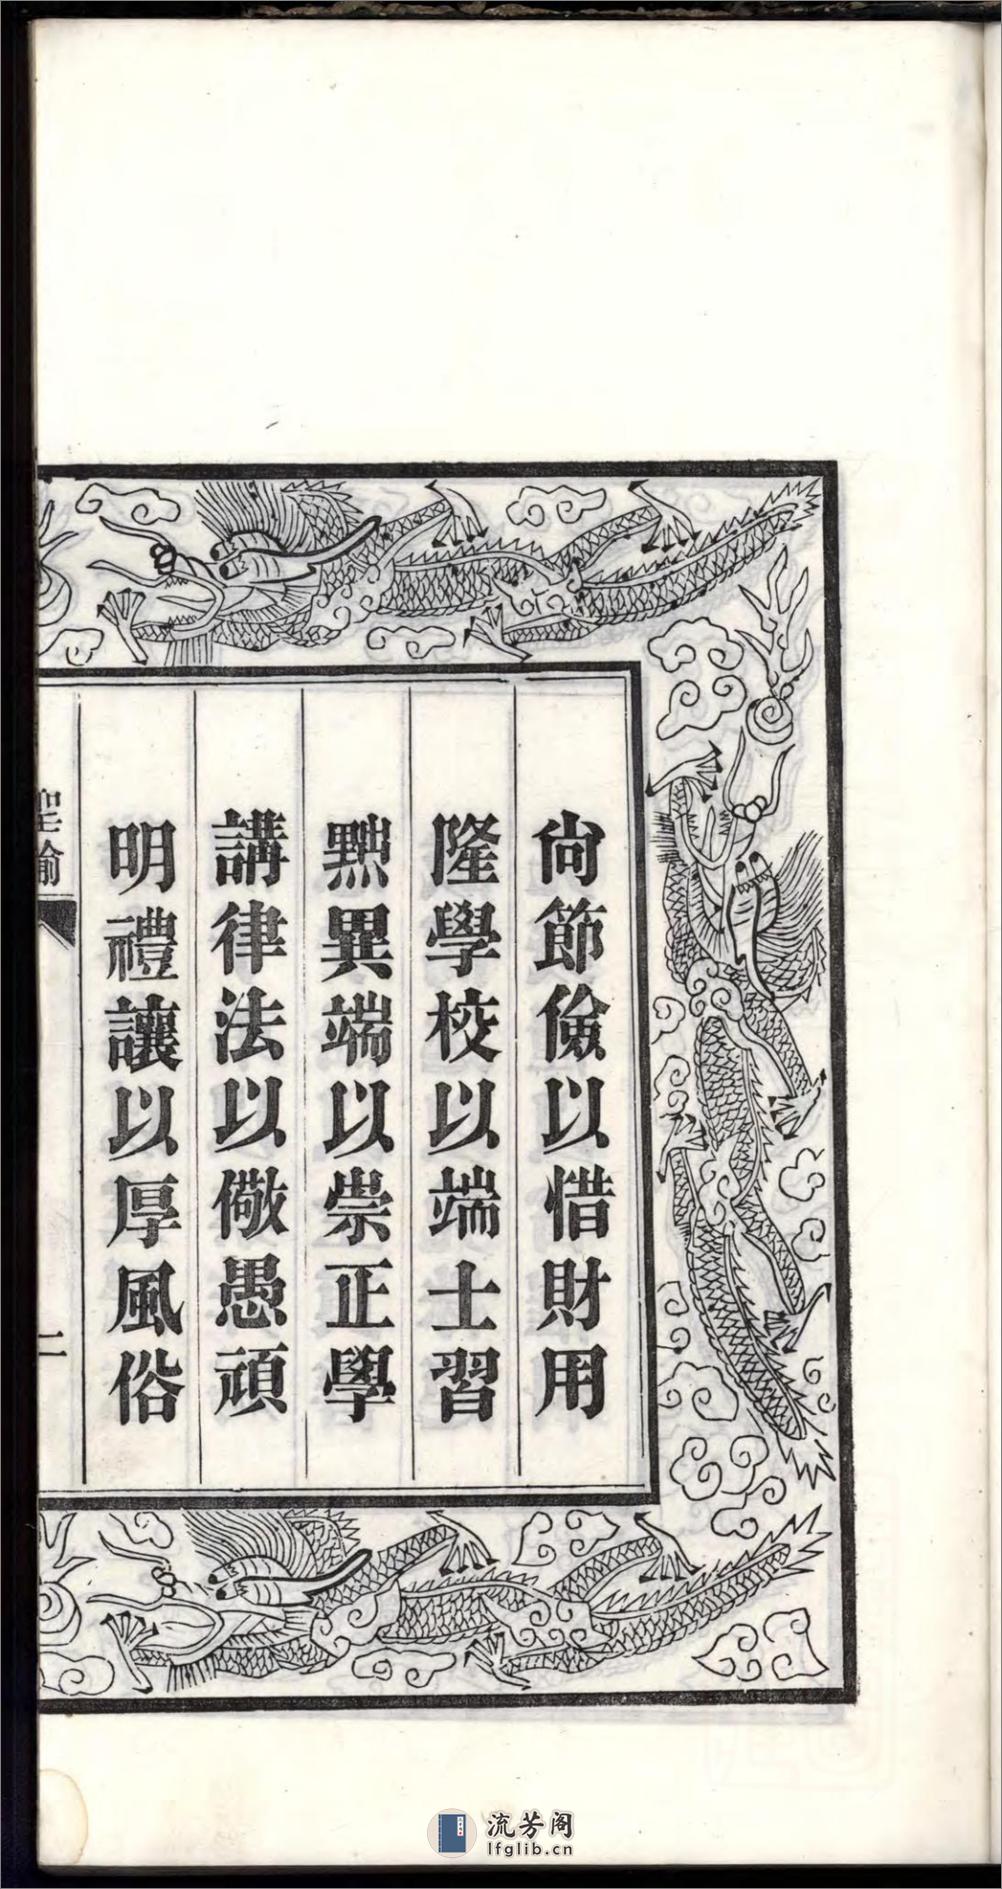 尙節儉以惜財用
隆學校以端士習
黜異端以崇正學
講律法以儆愚頑
明禮讓以厚風俗
聖諭
二
流芳阁
lfglib.cn